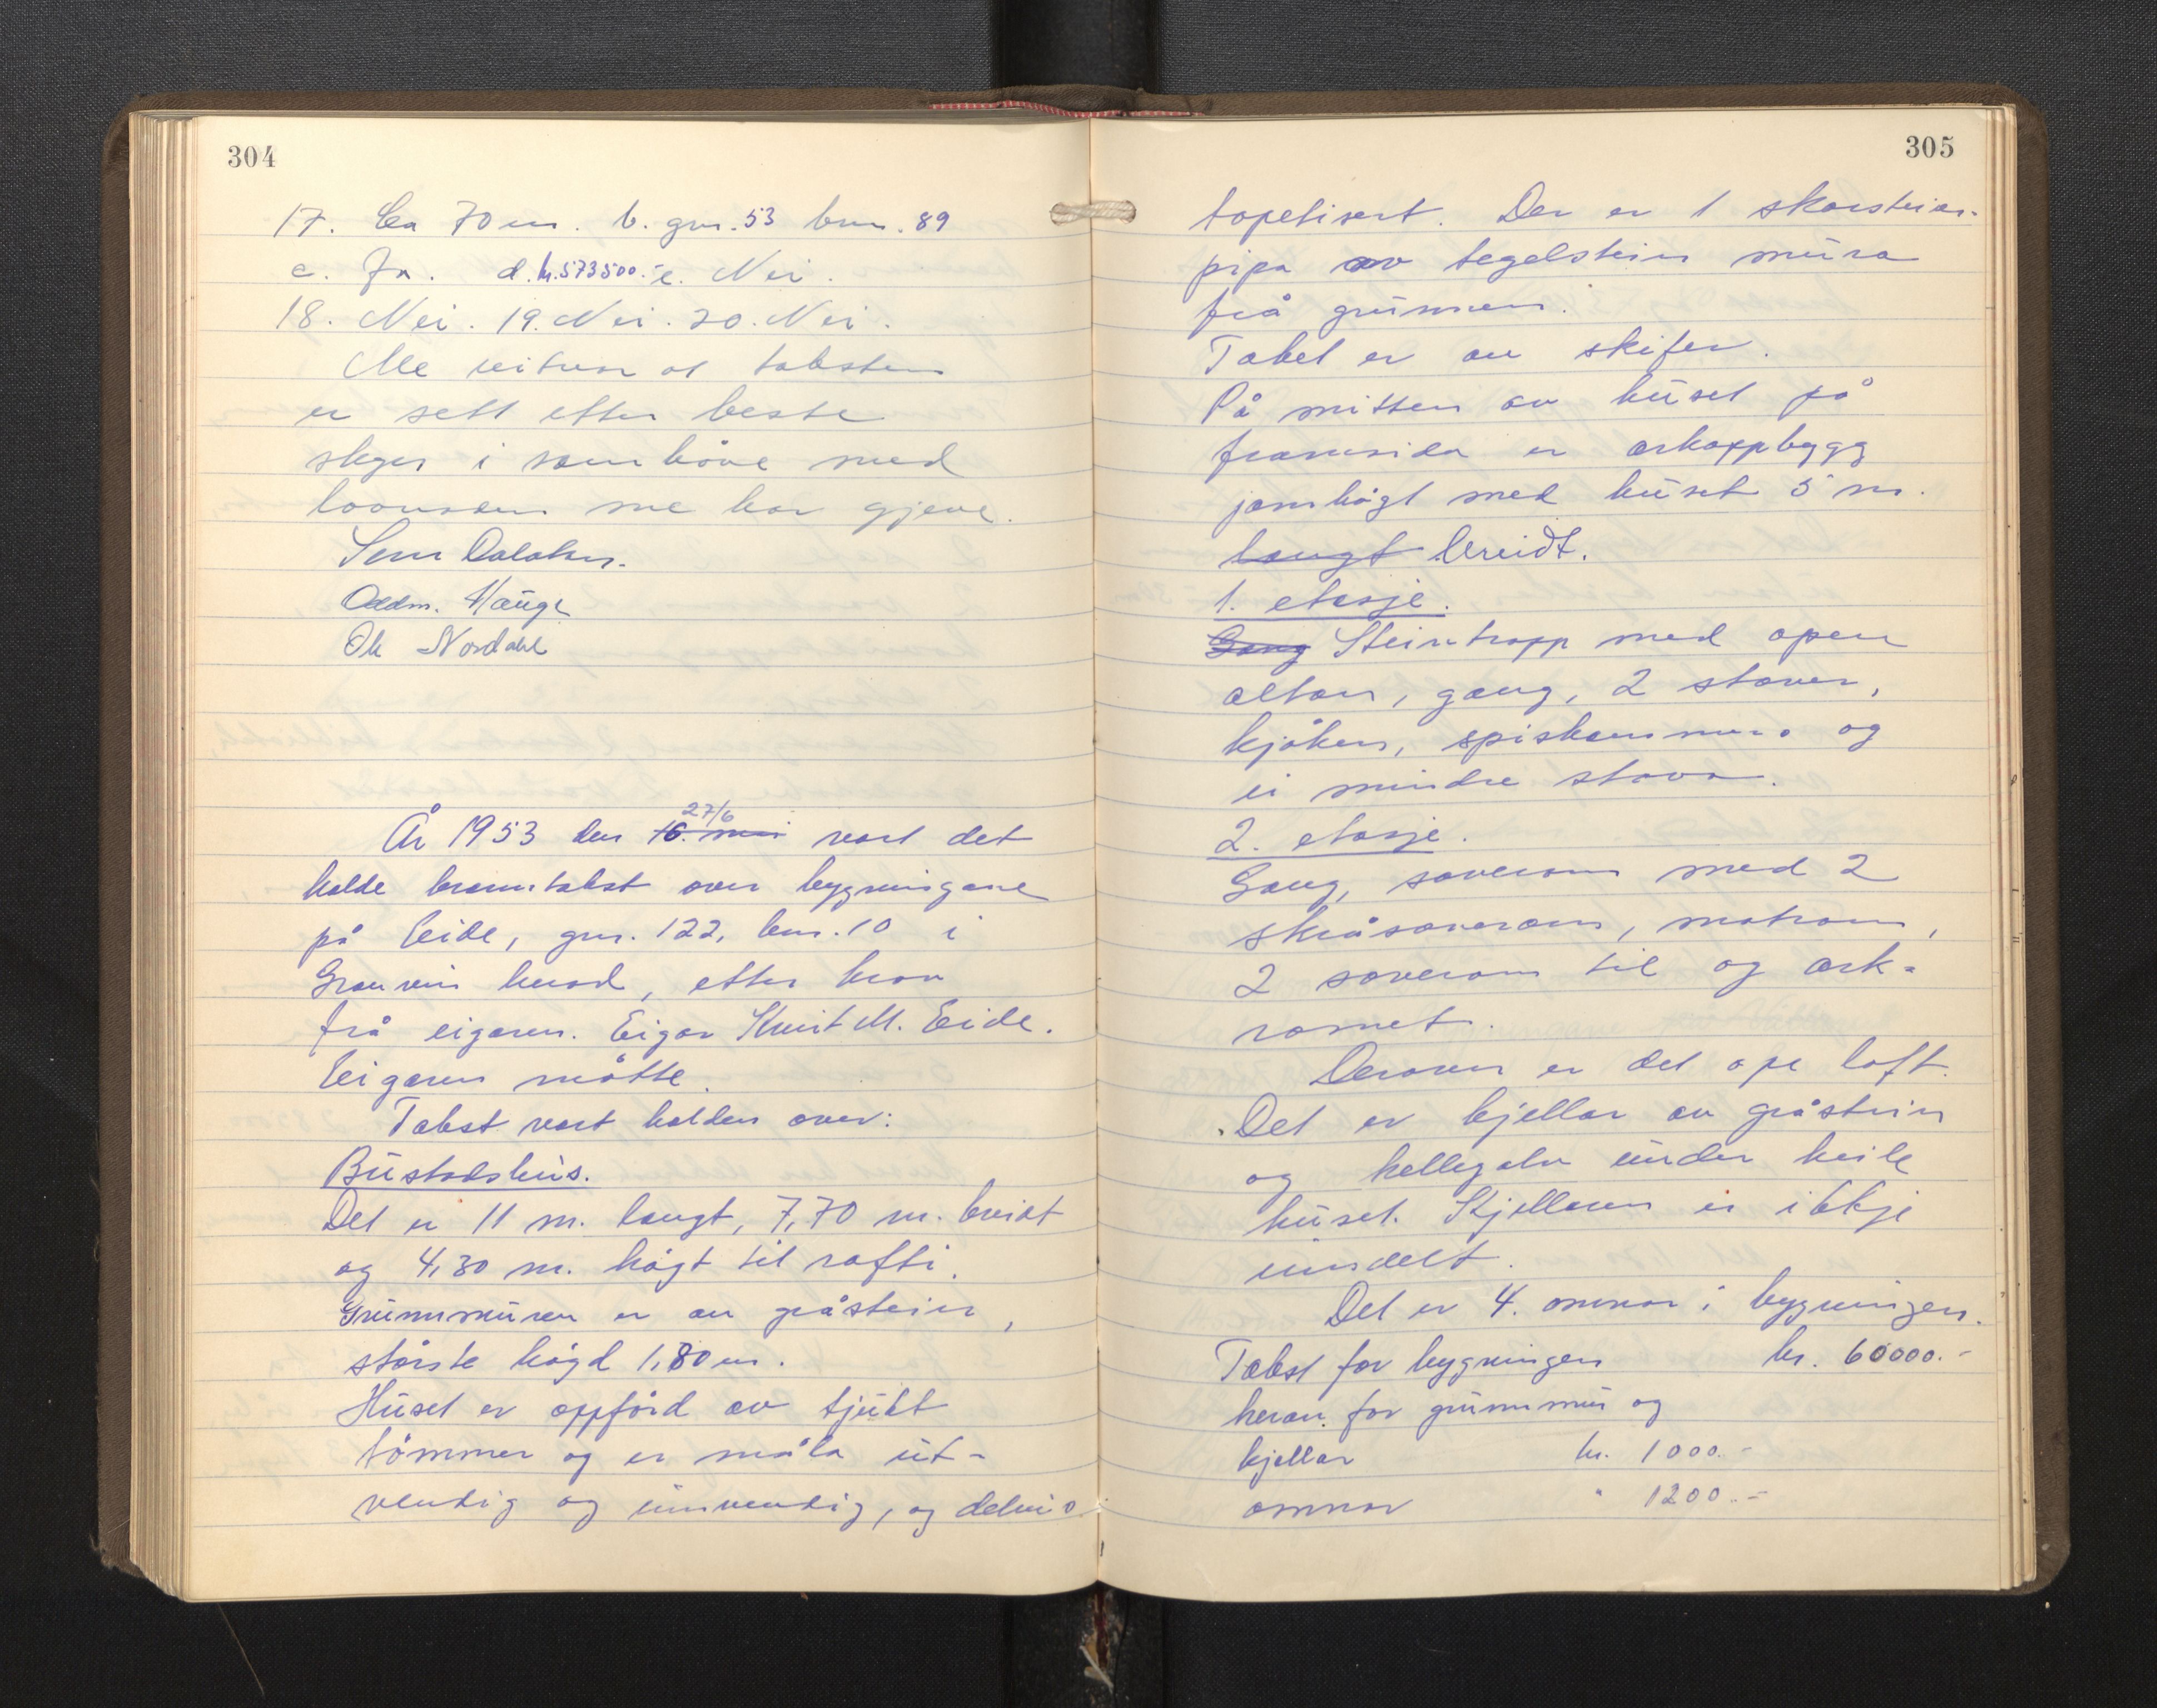 304
17. Ca 70 m. b. gnr. 53 bnr. 89
c. Ja. d. kr. 573500.- e. Nei.
18. Nei. 19. Nei. 20. Nei.
Me vitnar at taksten
er sett etter beste
skjøn i samhöve med
lovnaden me har gjeve.
Oddm. Hauge
Ole Nordahl
År 1953 den 16. mai 27/6 vart det
halde branntakst over bygningane
på Eide, gnr. 122, bnr. 10 i
Granvin herad, etter krav
frå eigaren. Eigar Knut M. Eide.
Eigaren møtte.
Takst vart halden over:
Bustadshus.
Det er 11 m. langt, 7,70 m. breidt
og 4,30 m. högt til rafti.
Grunnmuren er av gråstein,
störste högd 1,80 m.
Huset er oppförd av tjukt
tömmer og er måla ut-
vendig og innvendig, og delvis
305
tapetisert. Der er 1 skorsteins-
pipa av tegelstein mura
frå grunnen.
Taket er av skifer.
På mitten av huset på
framsida er arkoppbygg
jamhögt med huset 5 m.
langt breidt.
1. etasje.
Gang Steintrapp med open
altan, gang, 2 stover,
kjöken, spiskammers og
ei mindre stova.
2. etasje.
Gang, soverom med 2
skråsoverom, matrom,
2 soverom til og ark-
romet.
Derover er det ope loft.
Det er kjellar av gråstein
og hellegolv under heile
huset. Kjellaren er ikkje
inndelt.
Det er 4. omnar i bygningen.
Takst for bygningen kr. 60000.-
herav for grunnmur og
kjellar kr. 1000.-
omnar " 1200.-